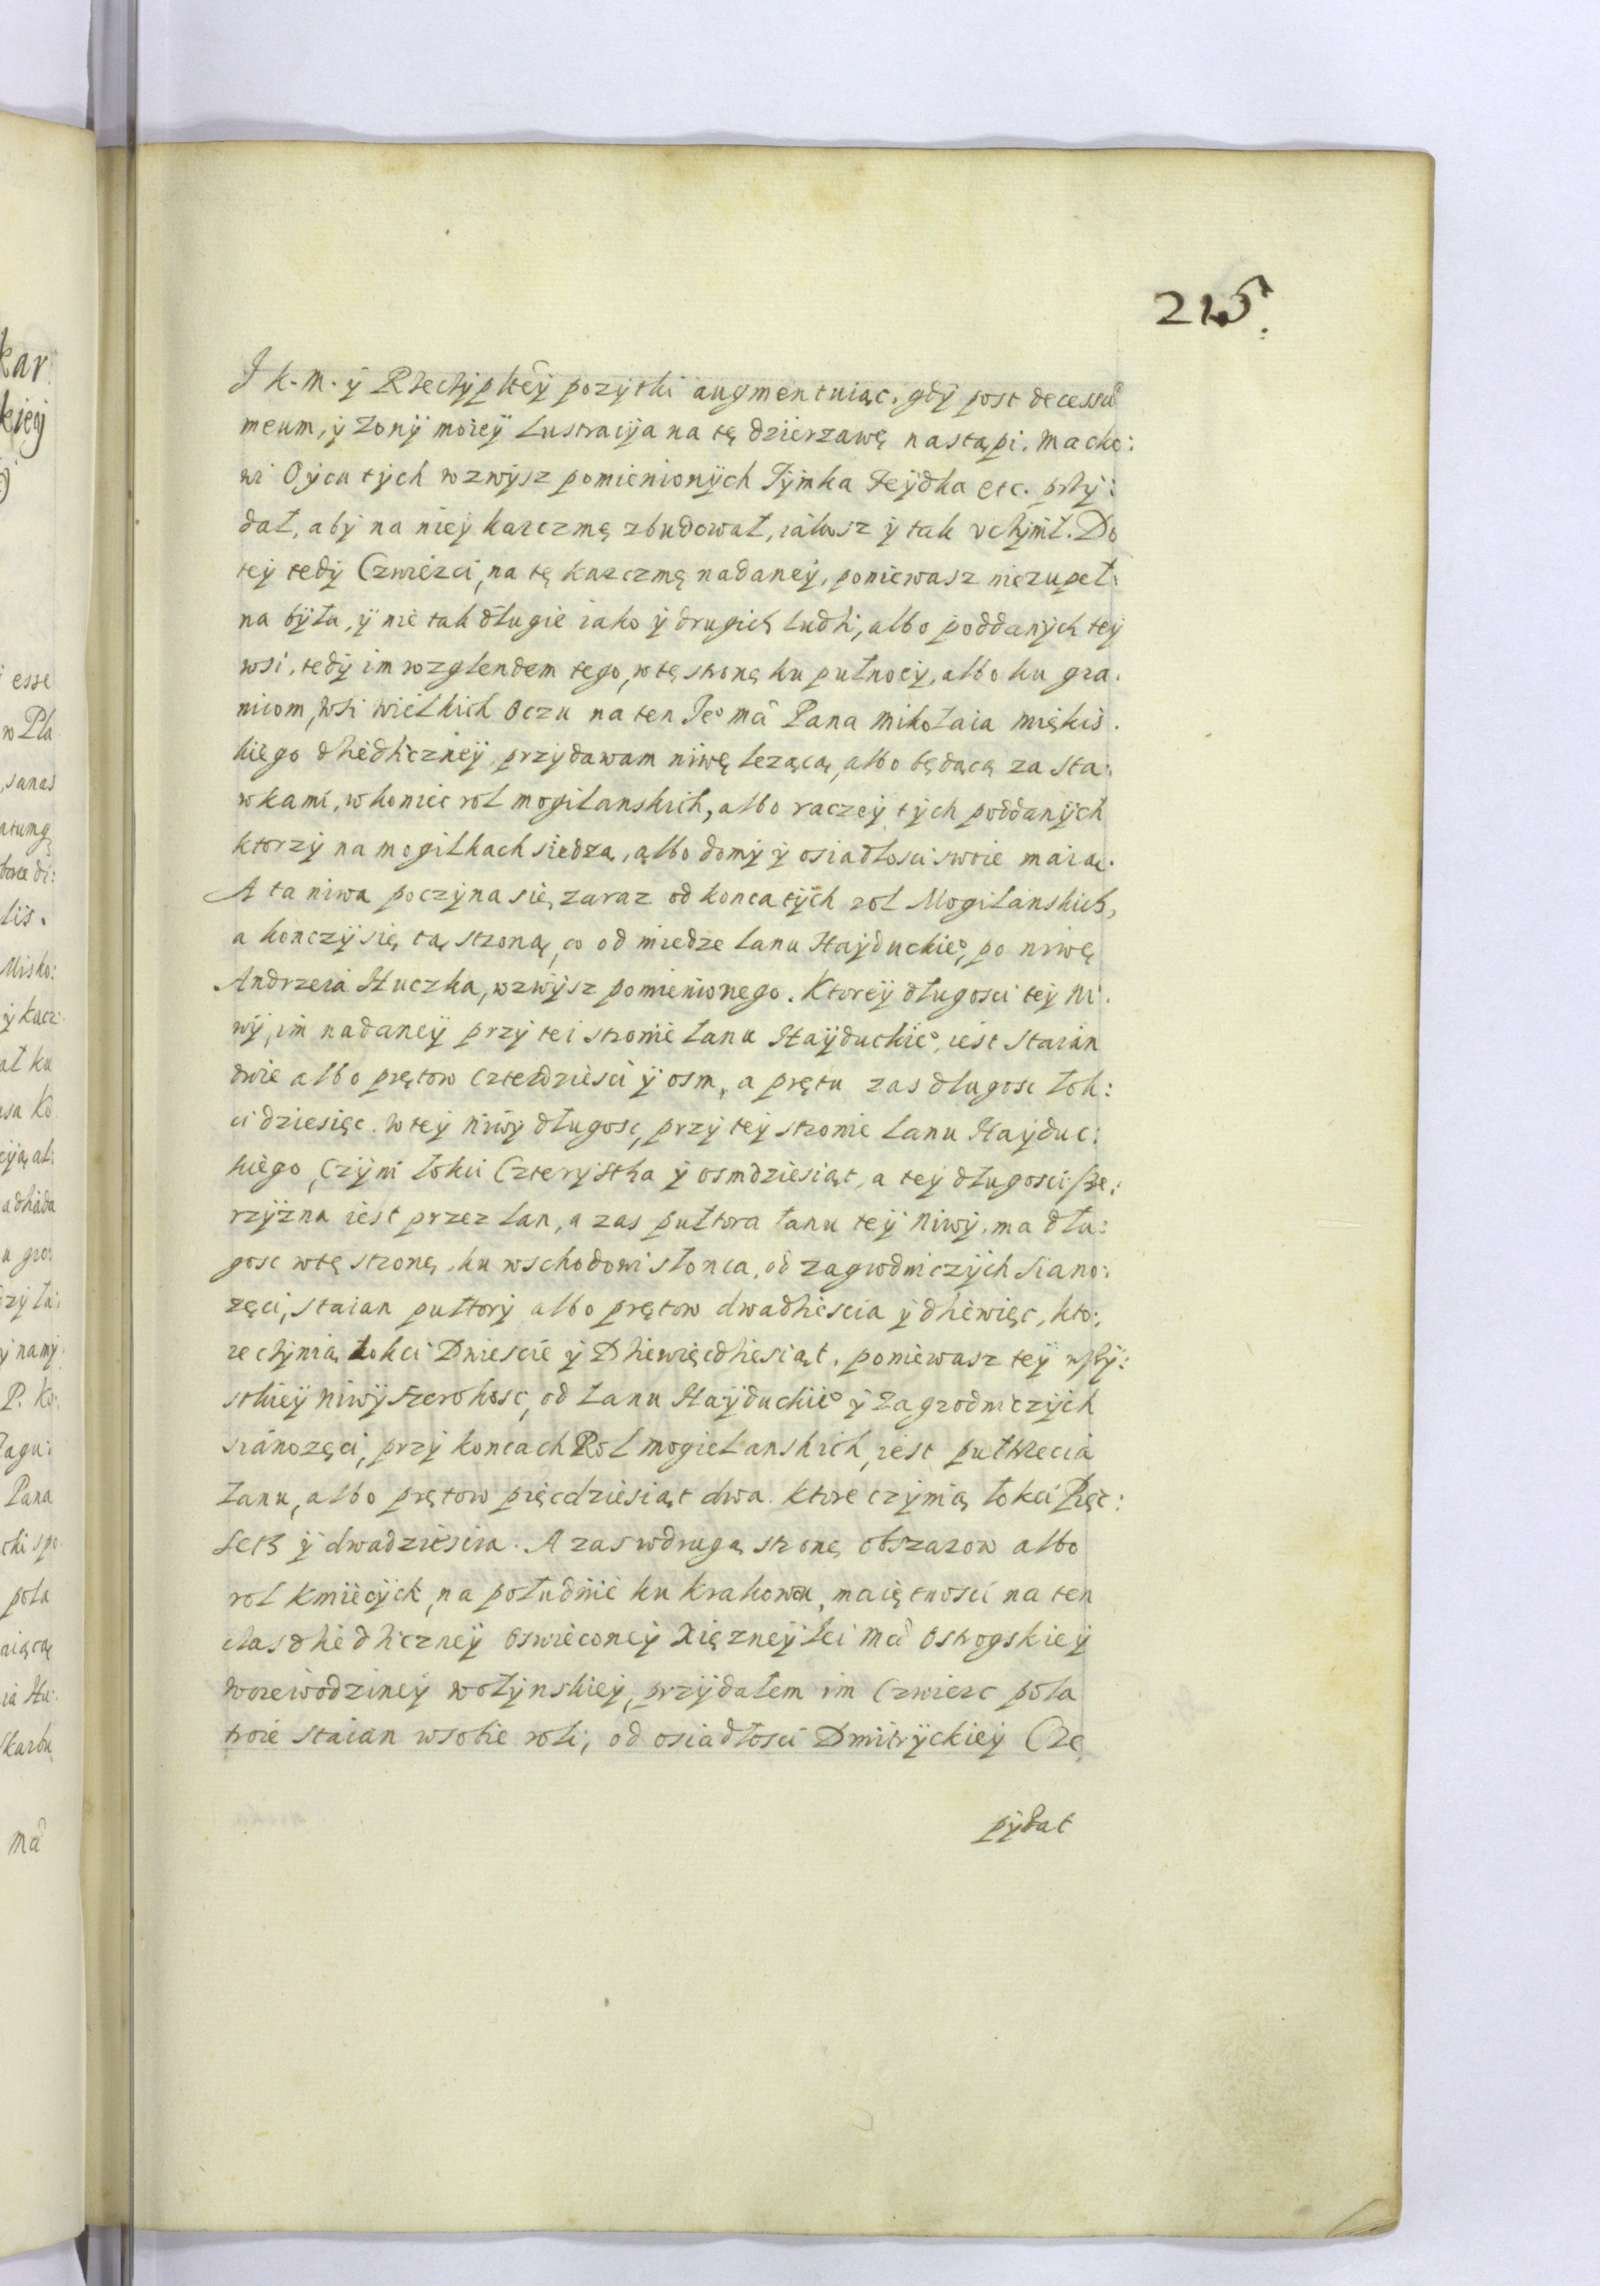 215
J k. M. ÿ Rzecżÿpltẽÿ pozÿtki augmentuiąc, gdÿ post decessũ
meum, ÿ żonÿ moieÿ Lustracÿa na tę dzierzawę nastąpi. Macko:
wi Oÿcu tÿch wzwÿsz pomienionÿch Tÿmka Feÿdka etc. przÿ:
dał, abÿ na nieÿ karczmę zbudował, iakosz ÿ tak vczÿnił. Do
teÿ tedÿ Czwierci, na tę karczmę nadaneÿ, poniewasz niezupeł:
na bÿła, ÿ nie tak długie iako ÿ drugich ludzi, albo poddanÿch teÿ
wsi, tedÿ im wzglendem tego, w tę stronę ku pułnocÿ, albo ku gra:
nicom, wsi wielkich Oczu na ten Je° mã Pana Mikołaia Miękis:
kiego dziedziczneÿ, przÿdawam niwę lezącą, albo będącą za sta:
wkami, w koniec rol mogilanskich, albo raczeÿ tÿch poddanÿch
ktorzÿ na mogilkach siedzą, albo domÿ ÿ osiadłosci swoie maią.
A ta niwa poczÿna się zaraz od konca tÿch rol Mogilanskich,
a konczÿ się tą stroną, co od miedze Lanu Haÿduckie°, po niwę
Andrzeia Huczka, wzwÿsz pomienionego. Ktoreÿ długosci teÿ Ni:
wÿ, im nadaneÿ przÿ tei stronie Lanu Haÿduckie°, iest staian
dwie albo prętow czterdziesci ÿ osm, a prętu zas długosc łok:
ci dziesięc. W teÿ niwÿ długosc, przÿ teÿ stronie Lanu Haÿduc:
kiego, Czÿni łokci Czterÿstha ÿ osmdziesiąt, a teÿ długosci sze:
rzÿzna iest przez Lan, a zas pułtora łanu teÿ Niwÿ, ma dłu:
gosc w tę stronę, ku wschodowi słonca, od zagrodniczÿch siano:
zęci, staian pułtorÿ albo prętow dwadziescia ÿ dziewięc, kto:
re czÿnią łokci Dwiescie ÿ Dziewięcdziesiąt, poniewasz teÿ wszÿ:
stkieÿ niwÿ szerokosc, od Lanu Haÿduckie° ÿ Zagrodniczÿch
sianozęci, przÿ koncach Rol mogielanskich, iest pułtrzecia
Lanu, albo prętow pięcdziesiąt dwa. ktore czÿnią łokci Pięc:
set ÿ dwadziescia. A zas w drugą stronę obszarow albo
rol kmiecÿch, na południe ku Krakowcu, maiętnosci na ten
czas dziedziczneÿ Oswieconeÿ Xięzneÿ Jei Mã Ostrogskieÿ
woiewodzineÿ wołÿnskieÿ, przÿdałem im Czwierc pola
troie staian w sobie roli, od osiadłosci Dmitrÿckieÿ Cze
pÿdat
kar
kieÿ
esse
w Pla
sanas
lis.
Misko:
ÿ karz
P. Ko
Zagu:
Pana
pola
aiącą
ia Hu
skarbu
Mã